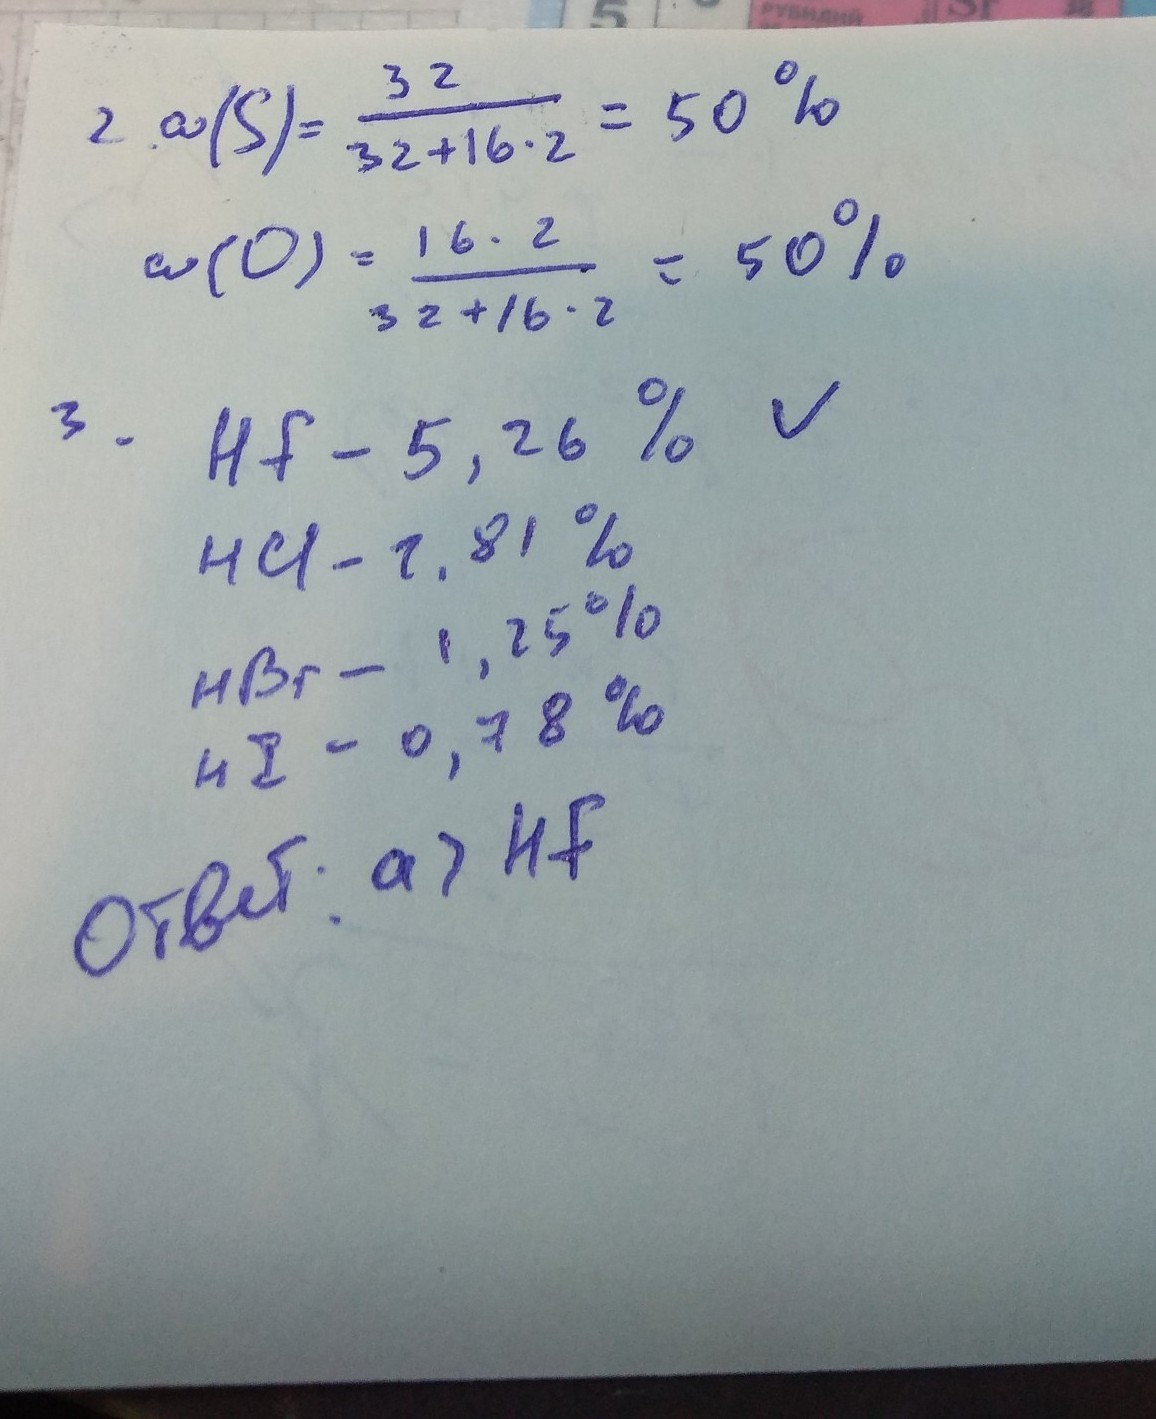 5
РУБИДИЙ
Sr
2. ω(S) = 32 / 32+16·2 = 50%
ω(O) = 16·2 / 32+16·2 = 50%
3. Hf - 5,26% ✓
HCl - 2,81%
HBr - 1,25%
HI - 0,78%
Ответ: а) Hf